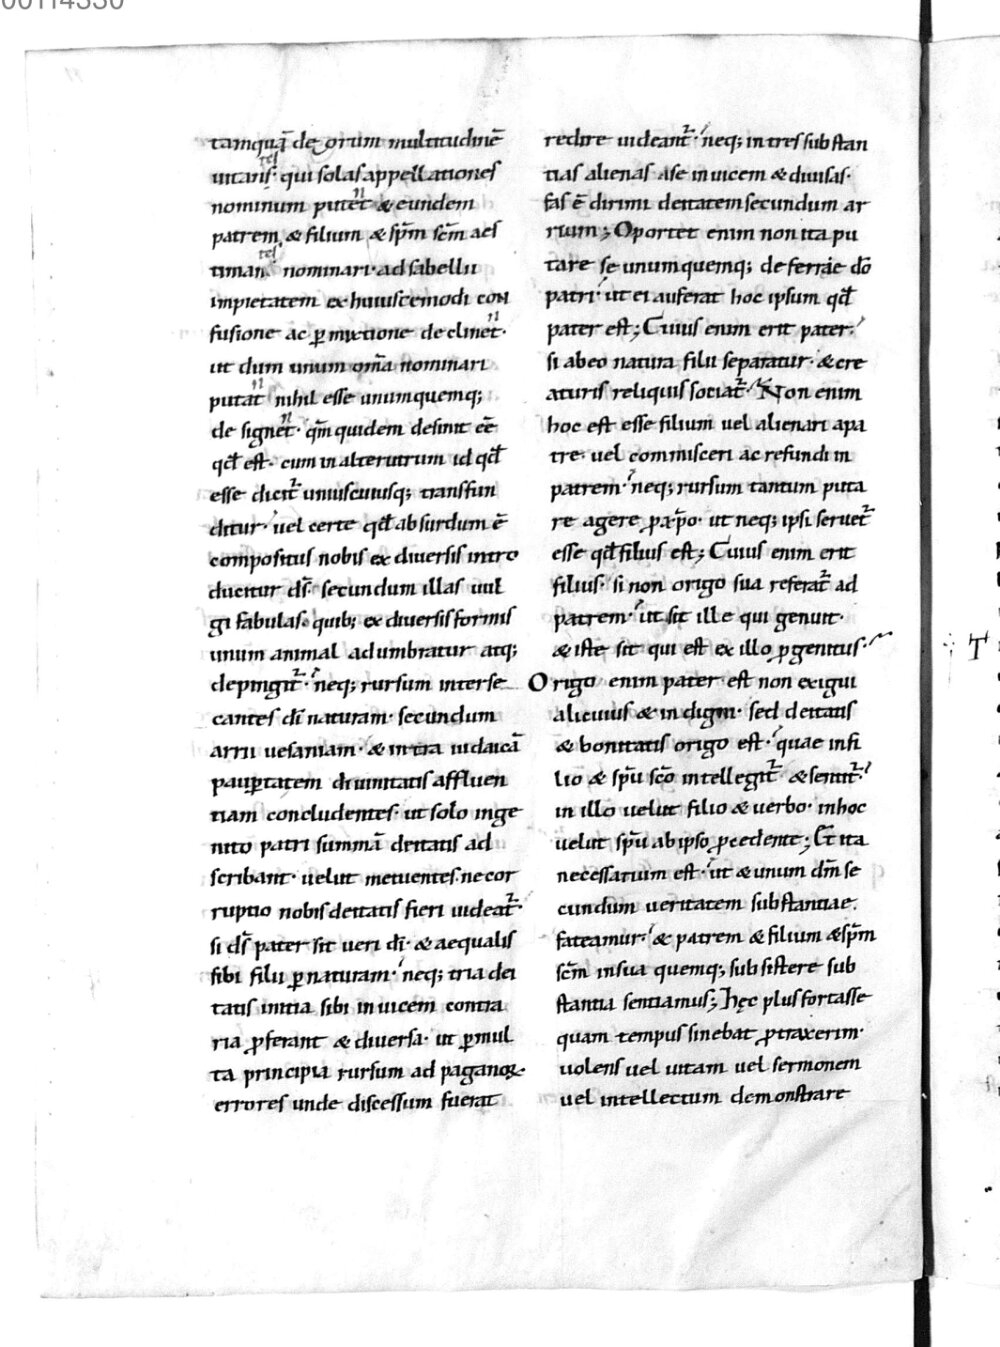 00114330
tamquā deorum multitudinē
uitans· qui solas appellationes
tes
nominum putet· & eundem
n
patrem & filium & sp̄m sc̄m aes
timan· nominari· ad sabellii
tes
impietatem ex huiuscemodi con
fusione ac ꝑmixtione declinet·
n
ut dum unum om̄a nominari
putat nihil esse unumquemq;
n
designet· qm̄ quidem desinit eē
n
qd̄ est· cum in alterutrum id qd̄
esse dicit᷑ uniuscuiusq; transfun
ditur· uel certe qd̄ absurdum ē
compositus nobis ex diuersis intro
ducitur ds̄· secundum illas uul
gi fabulas· quib; ex diuersis formis
unum animal adumbratur atq;
depingit᷑· neq; rursum inter se
cantes dī naturam· secundum
arrii uesaniam· & intra iudaicā
pauꝑtatem diuinitatis affluen
tiam concludentes· ut solo inge
nito patri summā deitatis ad
scribant· uelut metuentes· ne cor
ruptio nobis deitatis fieri uideat᷑·
si ds̄ pater sit ueri dī· & aequalis
sibi filii ꝑ naturam· neq; tria dei
tatis initia sibi inuicem contra
ria ꝓferant & diuersa· ut ꝑ mul
ta principia rursum ad paganoꝝ
errores unde discessum fuerat
redire uideant᷑· neq; in tres substan
tias alienas a se inuicem & diuisas·
fas ē dirimi deitatem secundum ar
rium; Oportet enim non ita pu
tare se unumquemq; deferre dō
patri· ut ei auferat hoc ipsum qd̄
pater est; Cuius enim erit pater·
si ab eo natura filii separatur· & cre
aturis reliquis sociat᷑· Non enim
hoc est esse filium uel alienari a pa
tre· uel commisceri ac refundi in
patrem· neq; rursum tantum puta
re agere ꝓ xp̄o· ut neq; ipsi seruet᷑
esse qd̄ filius est; Cuius enim erit
filius· si non origo sua referat᷑ ad
patrem· ut sit ille qui genuit·
& iste sit qui est ex illo ꝓgenitus·
Origo enim pater est non exigui
alicuius & indigni· sed deitatis
& bonitatis origo est· quae in fi
lio & sp̄u sc̄o intellegit᷑ & sentit᷑·
in illo uelut filio & uerbo· in hoc
uelut sp̄u ab ipso ꝓcedente; Et ita
necessarium est· ut & unum dm̄ se
cundum ueritatem substantiae·
fateamur· & patrem & filium & sp̄m
sc̄m in sua quemq; subsistere sub
stantia sentiamus; Hęc plus fortasse
quam tempus sinebat ꝓtraxerim·
uolens uel uitam uel sermonem
uel intellectum demonstrare